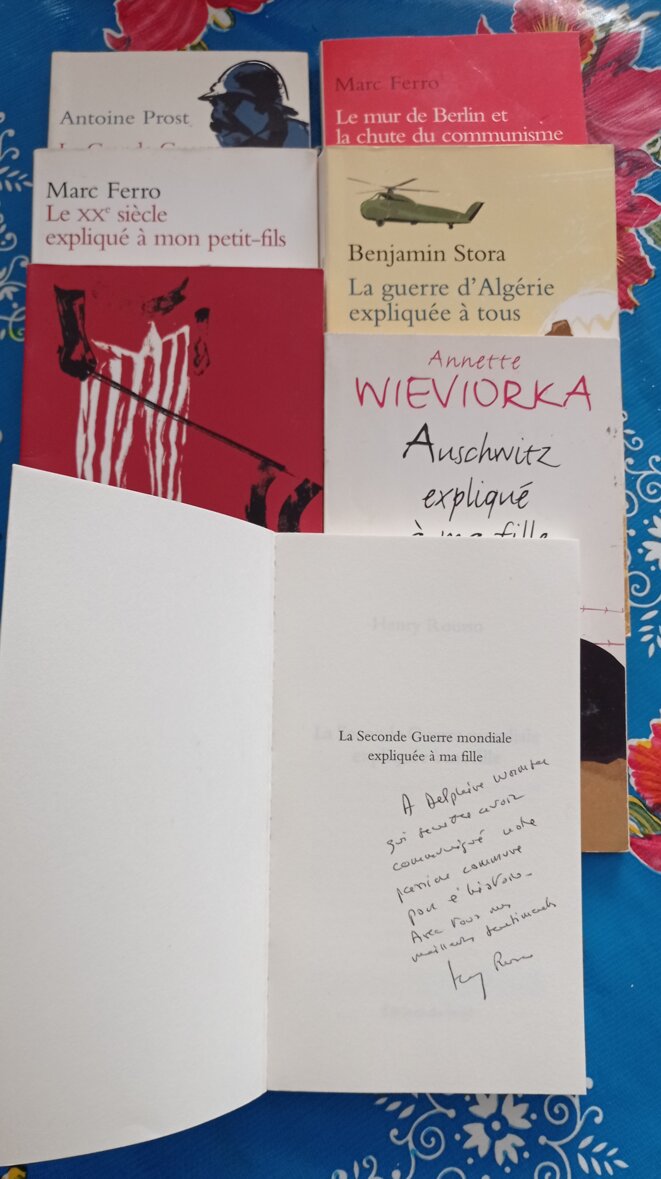 Antoine Prost
Marc Ferro
Le mur de Berlin et
la chute du communisme
Marc Ferro
Le XXe siècle
expliqué à mon petit-fils
Benjamin Stora
La guerre d'Algérie
expliquée à tous
Annette
WIEVIORKA
Auschwitz
expliqué
à ma fille
Henry Rousso
La Seconde Guerre mondiale
expliquée à ma fille
A Delphine
qui avoir
communiqué notre
passion commune
pour l'histoire.
Avec tous mes
meilleurs sentiments